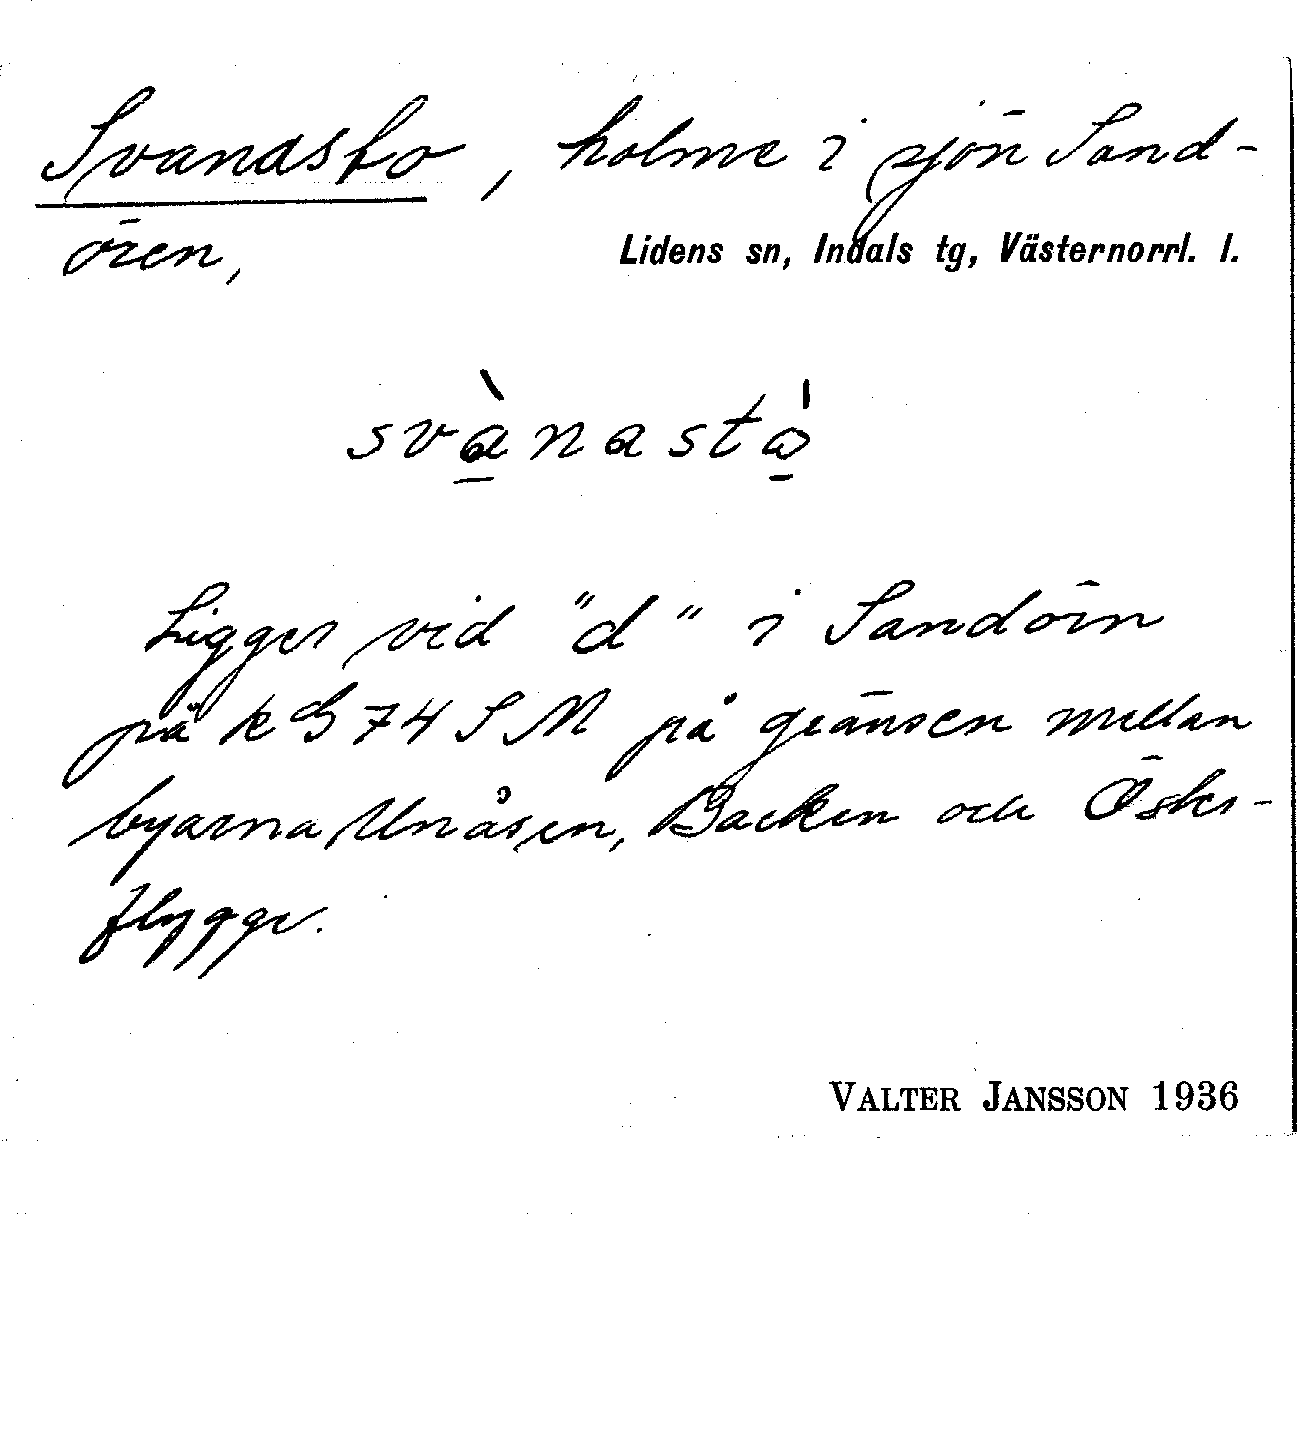 Svanasto, holme i sjön Sand-
ören,
Lidens sn, Indals tg, Västernorrl. l.
svànastå
Ligger vid "d" i Sandöin
på k G 74 S M på gränsen mellan
byarna Unåsen, Backen och Öster-
flygge.
VALTER JANSSON 1936